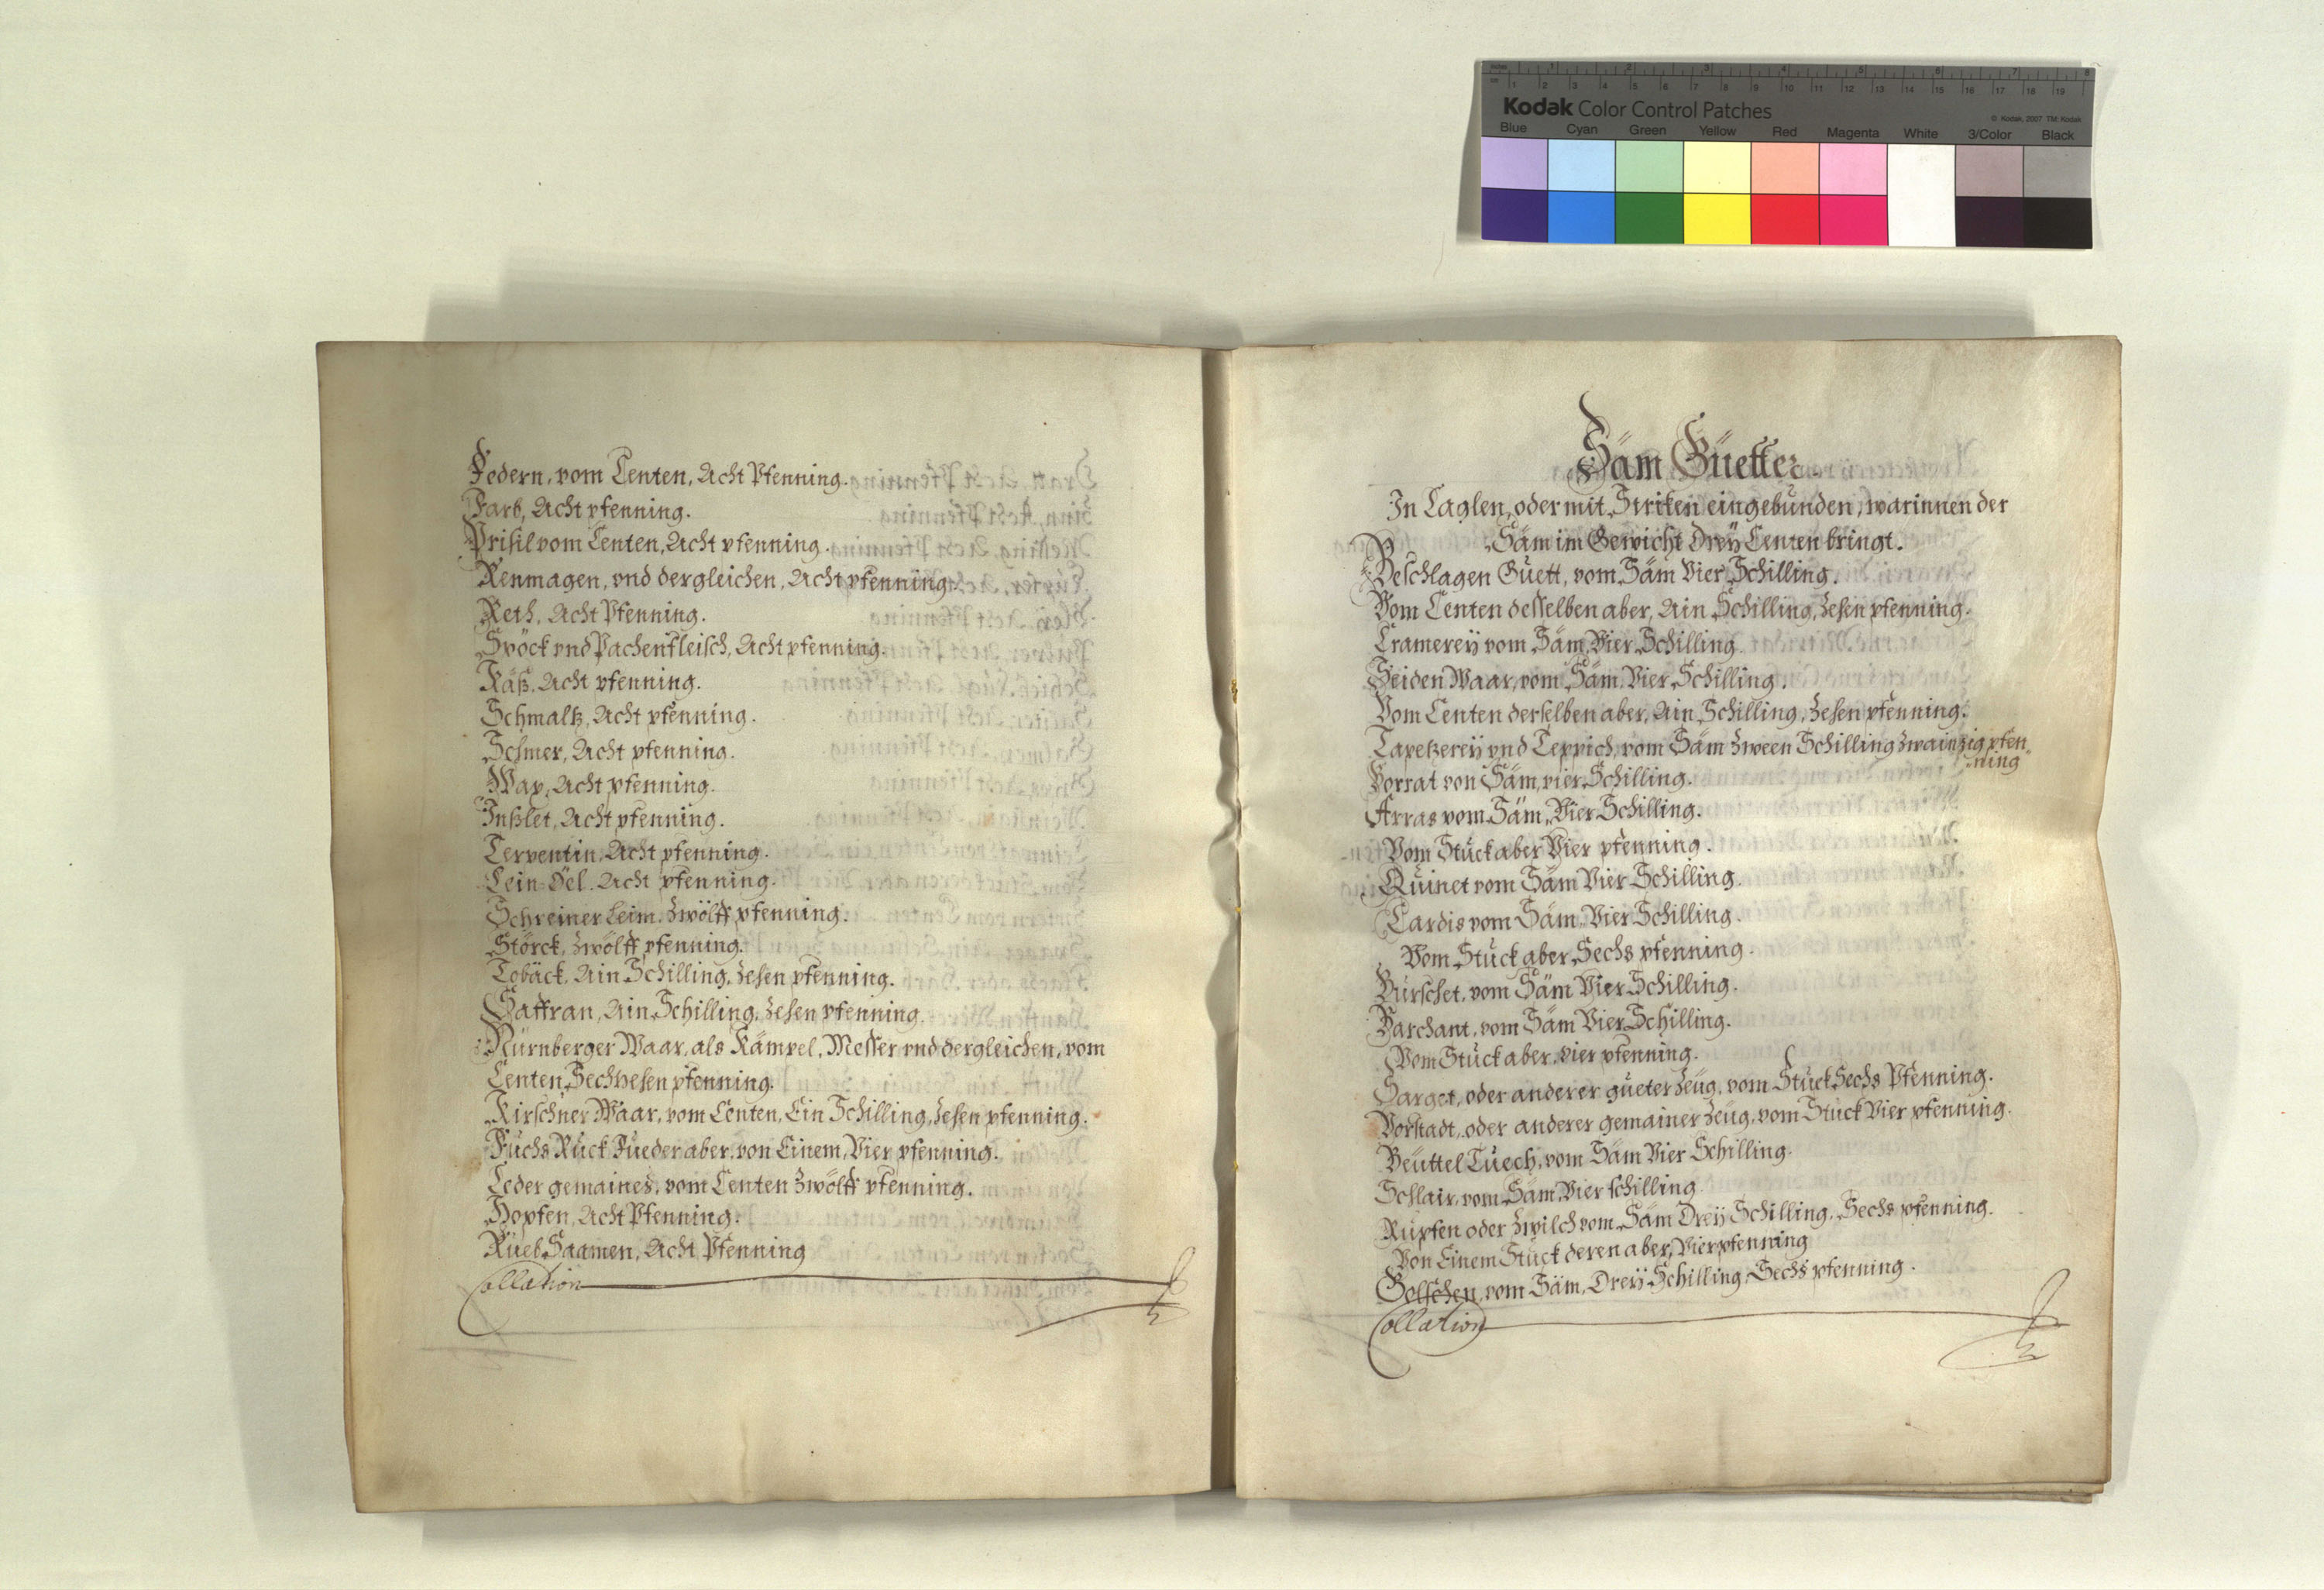 Federn, vom Centen, Acht Pfenning.
Farb, Acht pfenning.
Prisil vom Centen, Acht pfenning.
Renmagen, vnd dergleichen, Acht pfenning.
Reth, Acht Pfenning.
Spöck vnd Pachenfleisch, Acht pfenning.
Käß, Acht pfenning.
Schmaltz, Acht pfenning.
Schmer, Acht pfenning.
Wax, Acht pfenning.
Inßlet, Acht pfenning.
Terpentin, Acht pfenning.
Lein-Öel, Acht pfenning.
Schreiner Leim, Zwölff pfenning.
Störck, Zwölff pfenning.
Tobäck, Ain Schilling, Zehen pfenning.
Saffran, Ain Schilling, Zehen pfenning.
Nürnberger Waar, als Kämpel, Messer vnd dergleichen, vom
Centen Sechzehen pfenning.
Kirschner Waar, vom Centen, Ein Schilling, Zehen pfenning.
Fuchs Ruck Fueder aber, von Einem, Vier pfenning.
Leder gemaines, vom Centen Zwölff pfenning.
Hopfen, Acht Pfenning.
Rueb Saamen, Acht Pfenning
Collation
Säm Güetter.
In Laglen, oder mit Striken eingebunden, warinnen der
Säm im Gewicht Dreÿ Centen bringt.
Beschlagen Guett, vom Säm Vier Schilling.
Vom Centen desselben aber, Ain Schilling, Zehen pfenning.
Cramereÿ vom Säm, Vier Schilling.
Seiden Waar, vom Säm, Vier Schilling.
Vom Centen derselben aber, Ain Schilling, Zehen pfenning.
Tapetzereÿ vnd Teppich, vom Säm Zween Schilling Zwainzig pfen
ning
Borrat von Säm, vier Schilling.
Arras vom Säm, Vier Schilling.
Vom Stuck aber Vier pfenning.
Quinet vom Säm Vier Schilling.
Cardis vom Säm, Vier Schilling.
Vom Stuck aber, Sechs pfenning.
Burschet, vom Säm Vier Schilling.
Barchant, vom Säm Vier Schilling.
Vom Stuck aber, vier pfenning.
Sarget, oder anderer gueter Zeug, vom Stuck Sechs Pfenning.
Vorstadt, oder anderer gemainer Zeug, vom Stuck Vier pfenning.
Beüttel Tuech, vom Säm Vier Schilling.
Schlair, vom Säm, Vier schilling
Rupfen oder Zwilch vom Säm Dreÿ Schilling, Sechs pfenning.
Von Einem Stuck deren aber, Vier pfenning
Golschen, vom Säm, Dreÿ Schilling, Sechs pfenning.
Collation
Kodak Color Control Patches
© Kodak, 2007 TM: Kodak
Blue Cyan Green Yellow Red Magenta White 3/Color Black